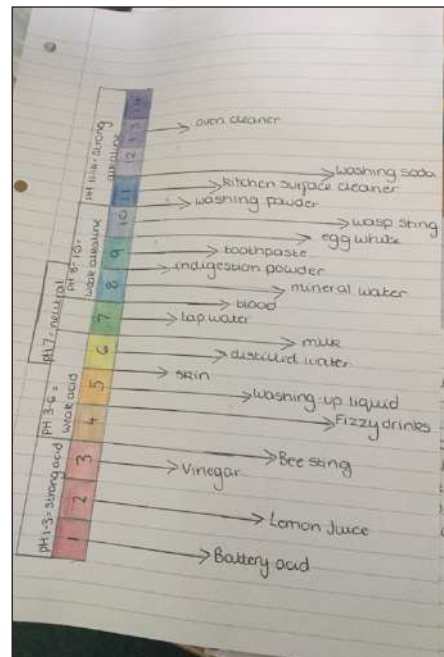 pH 11-14 = strong alkaline
pH 8-10 = weak alkaline
pH 7 - neutral
pH 3-6 = weak acid
pH 1-3 = strong acid
14
13
12
11
10
9
8
7
6
5
4
3
2
1
oven cleaner
washing soda
kitchen surface cleaner
washing powder
wasp sting
egg white
toothpaste
indigestion powder
mineral water
blood
tap water
milk
distilled water
skin
washing-up liquid
Fizzy drinks
Bee sting
Vinegar
Lemon Juice
Battery acid